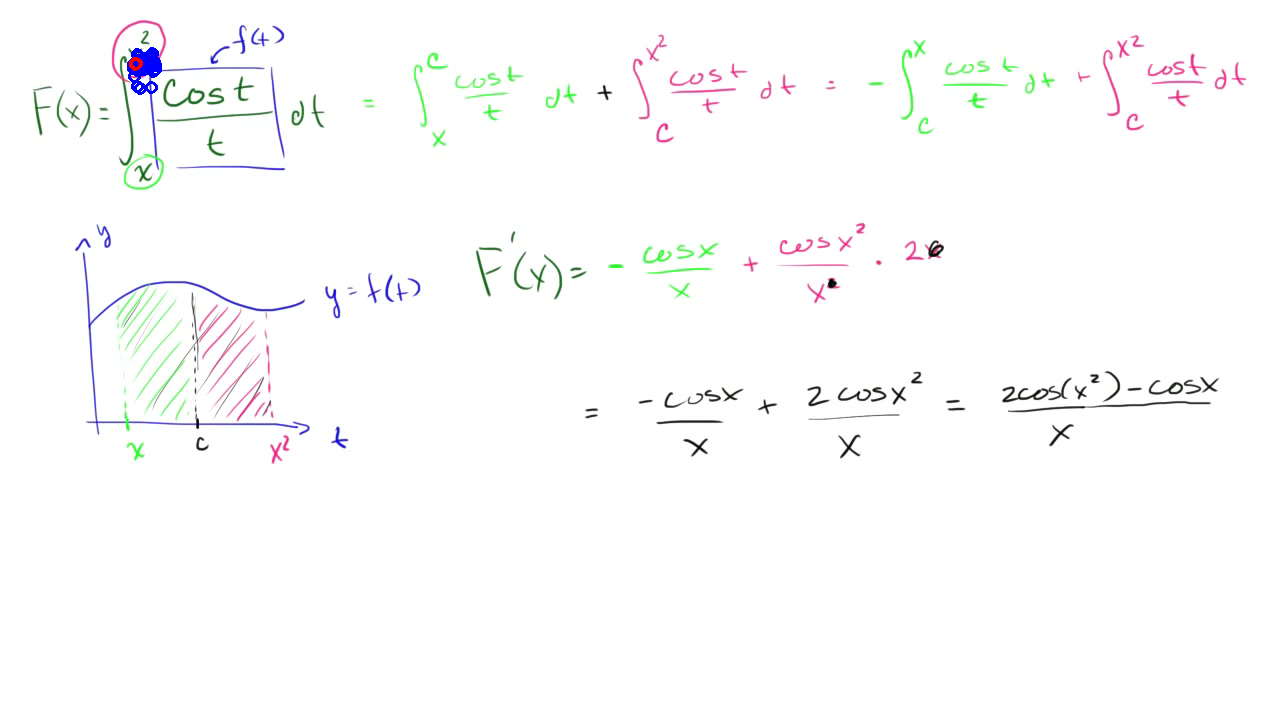 F(x) = ∫_x^{x²} cos t / t dt = ∫_x^c cos t / t dt + ∫_c^{x²} cos t / t dt = - ∫_c^x cos t / t dt + ∫_c^{x²} cos t / t dt
f(t)
y
y = f(t)
x c x² t
F'(x) = - cosx / x + cosx² / x · 2
= -cosx / x + 2cosx² / x = 2cos(x²) - cosx / x